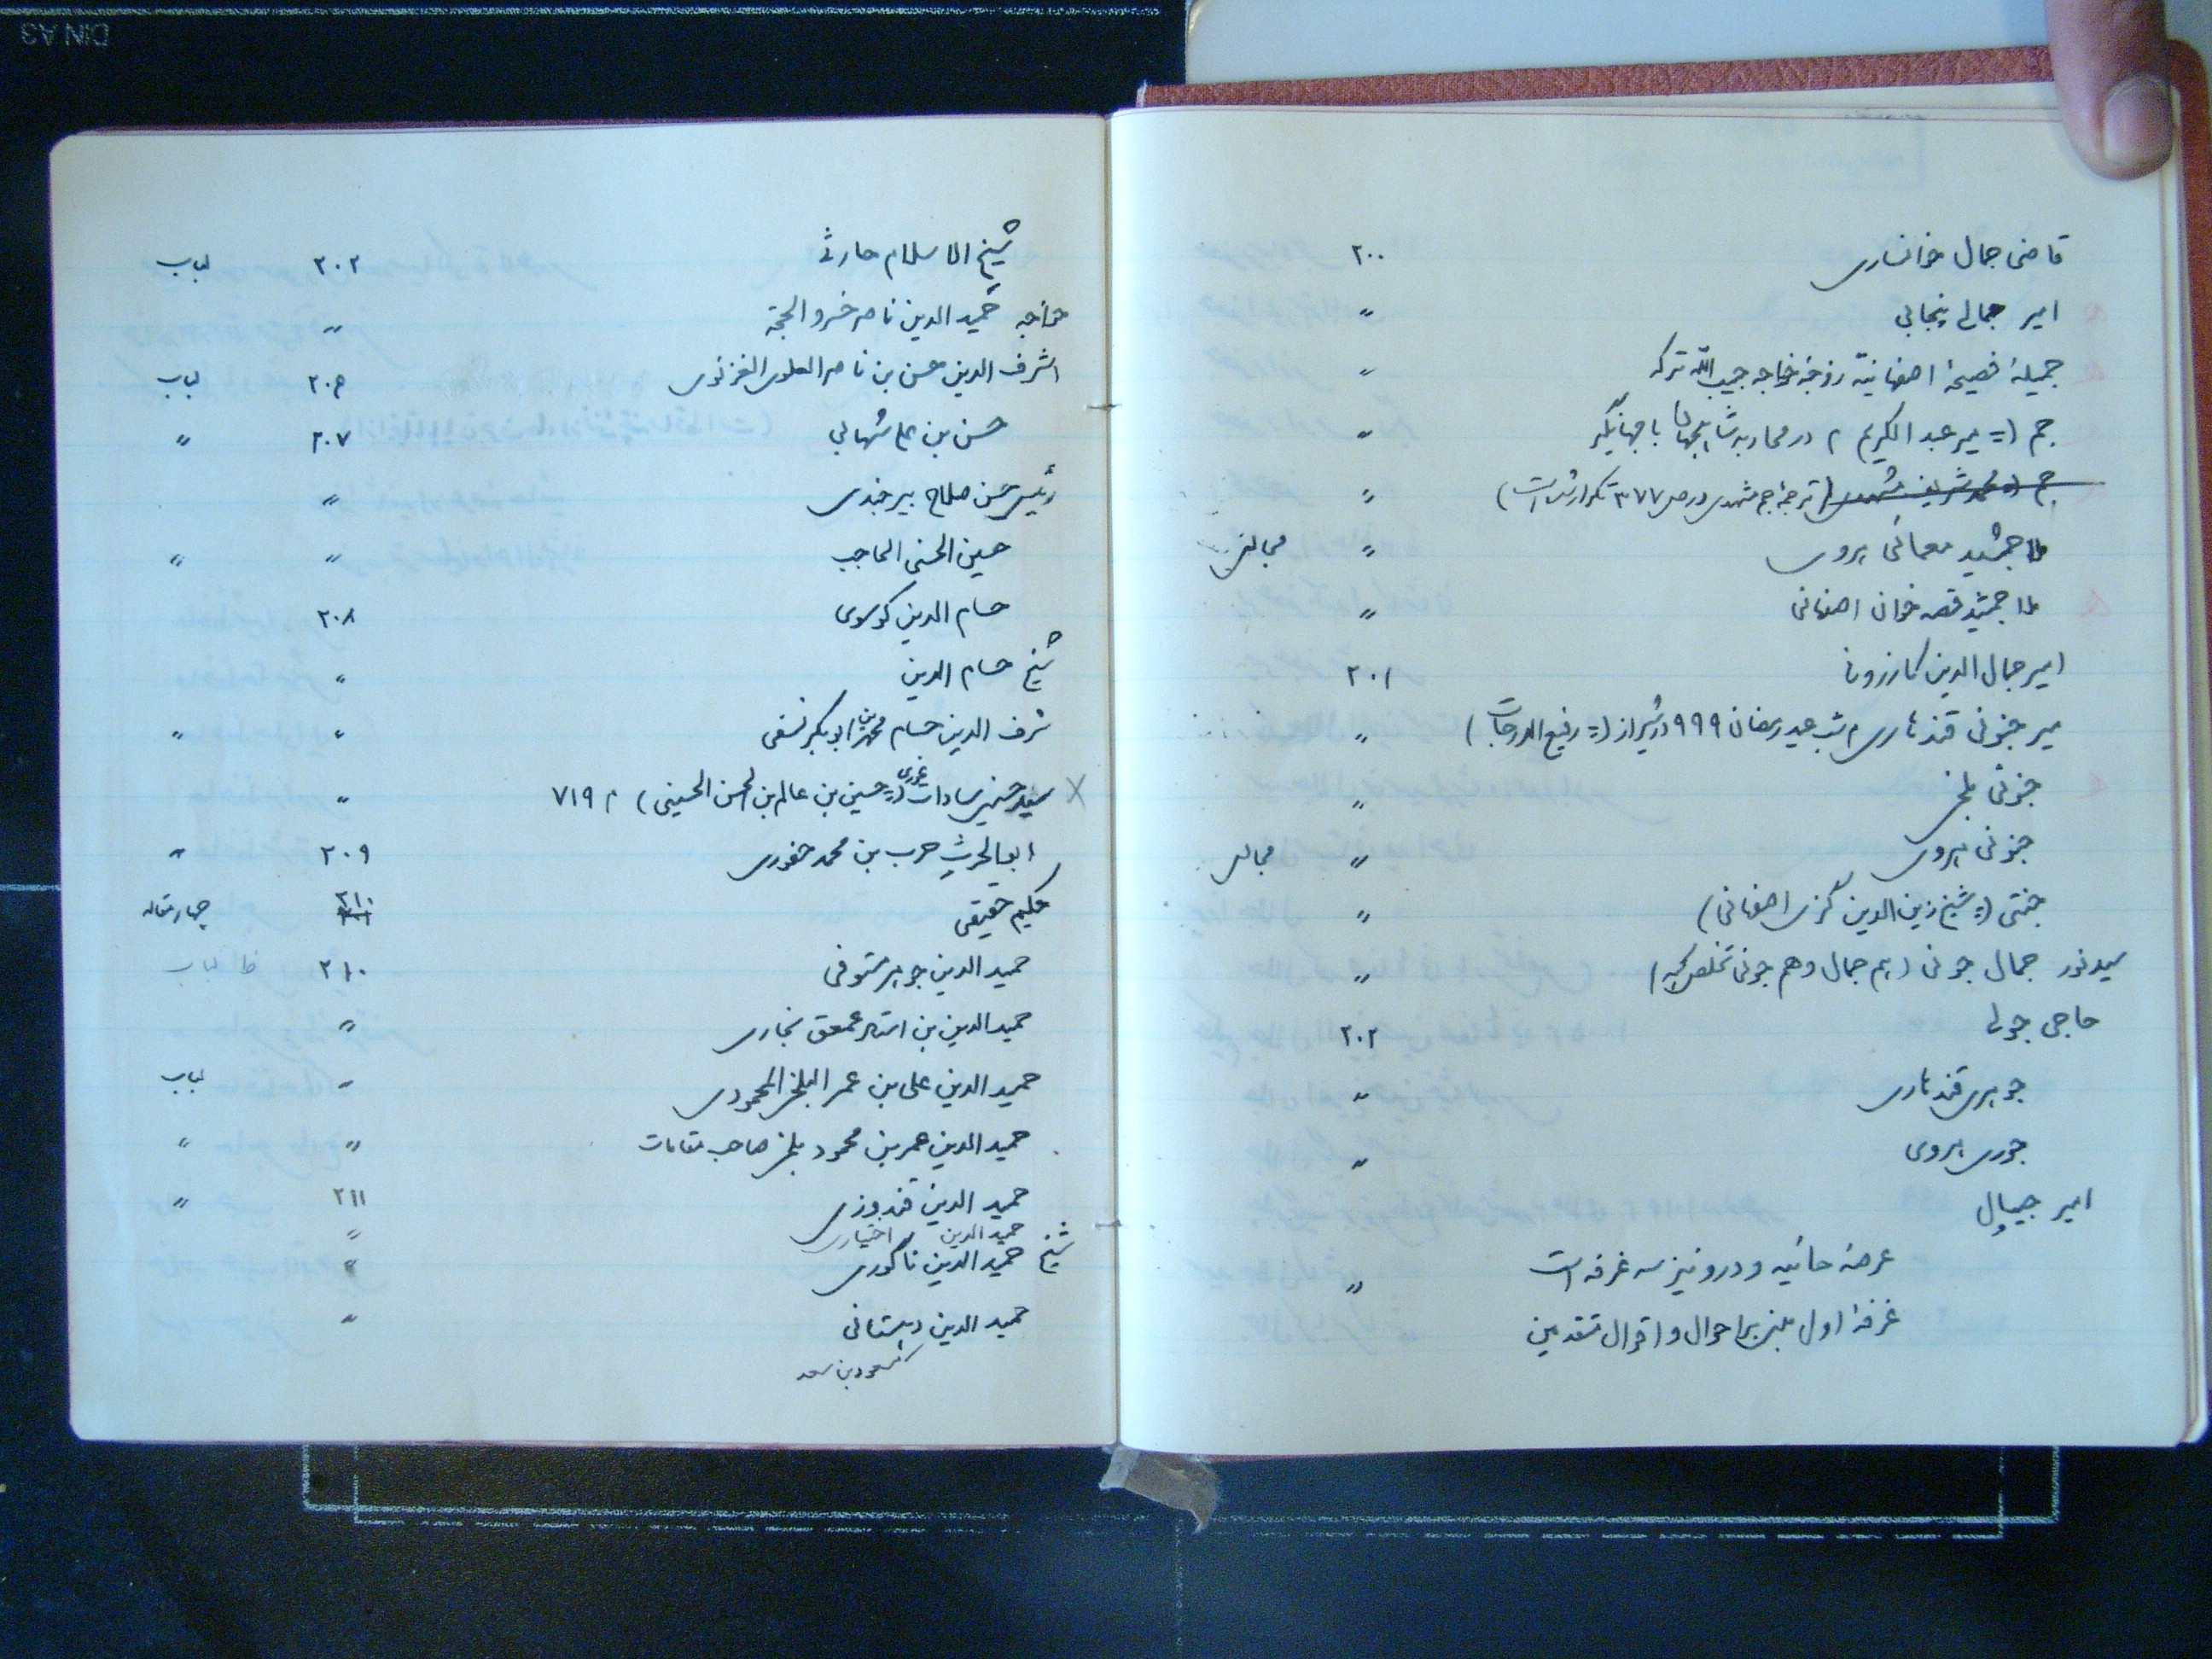 قاضی جمال خوانساری ۲۰۰
امیر جمالی پنجابی 〃
جمیلهٔ فصیحهٔ اصفهانیّه زوجهٔ خواجه حبیب الله ترکه 〃
جم (= میر عبد الکریم م در محاربه شاهجهان با جهانگیر 〃
جم (= محمد شریف مشهدی) (ترجمهٔ جم مشهدی در ص ۳۷۷ تکرار شده است) 〃
ملا جمشید معمائی هروی 〃 مجالس
ملا جمشید قصه خوان اصفهانی 〃
امیر جمال الدین کازرونی ۲۰۱
میر جنونی قندهاری م شب عید رمضان ۹۹۹ در شیراز (= رفیع الدرجات) 〃
جنونی بلخی 〃
جنونی هروی 〃 مجالس
جنتی (= شیخ زین الدین کرزی اصفهانی) 〃
سید نور جمال جونی (هم جمال و هم جونی تخلص کرده) 〃
حاجی جولی ۲۰۲
جوهری قندهاری 〃
جوری هروی 〃
امیر جیپال
عرصهٔ حائیه و درو نیز سه غرفه است 〃
غرفهٔ اول مبنی بر احوال و اقوال متقدمین
شیخ الاسلام حارثی ۲۰۲ لباب
خواجه حمید الدین ناصر خسرو الحجّة 〃
اشرف الدین حسن بن ناصر العلوی الغزنوی ۲۰۴ لباب
حسن بن علی شهابی ۲۰۷ 〃
رئیس حسن صلاح بیرجندی 〃
حسین الحسنی الحاجب 〃 〃
حسام الدین کوسوی ۲۰۸
شیخ حسام الدین 〃
شرف الدین حسام محمد بن ابو بکر نسفی 〃 〃
× سید حسینی سادات غوری (= حسین بن عالم بن الحسن الحسینی) م ۷۱۹ 〃
ابو الحرث حرب بن محمد حفوری ۲۰۹ 〃
حکیم حقیقی ۲۱۰ چهار مقاله
حمید الدین جوهر مستوفی ۲۱۰ ظ لباب
حمید الدین بن استاد عمعق بخاری 〃
حمید الدین علی بن عمر البلخی المحمودی 〃 لباب
حمید الدین عمر بن محمود بلخی صاحب مقامات 〃 〃
حمید الدین قندوزی ۲۱۱ 〃
حمید الدین اختیاری 〃
شیخ حمید الدین ناگوری 〃
حمید الدین دهستانی 〃
مسعود بن سعد